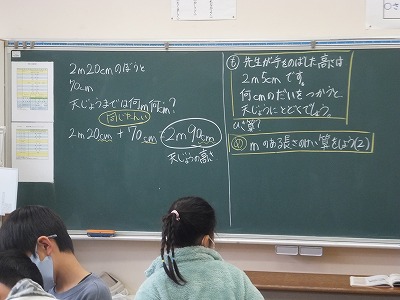 2m20cmのぼうと
70cm
天じょうまでは何m何cm?
同じたんい
2m20cm + 70cm = 2m90cm
天じょうの高さ
も 先生が手をのばした高さは
2m5cmです。
何cmのだいをつかうと、
天じょうにとどくでしょう。
ひき算?
め mのある長さのけい算をしよう(2)